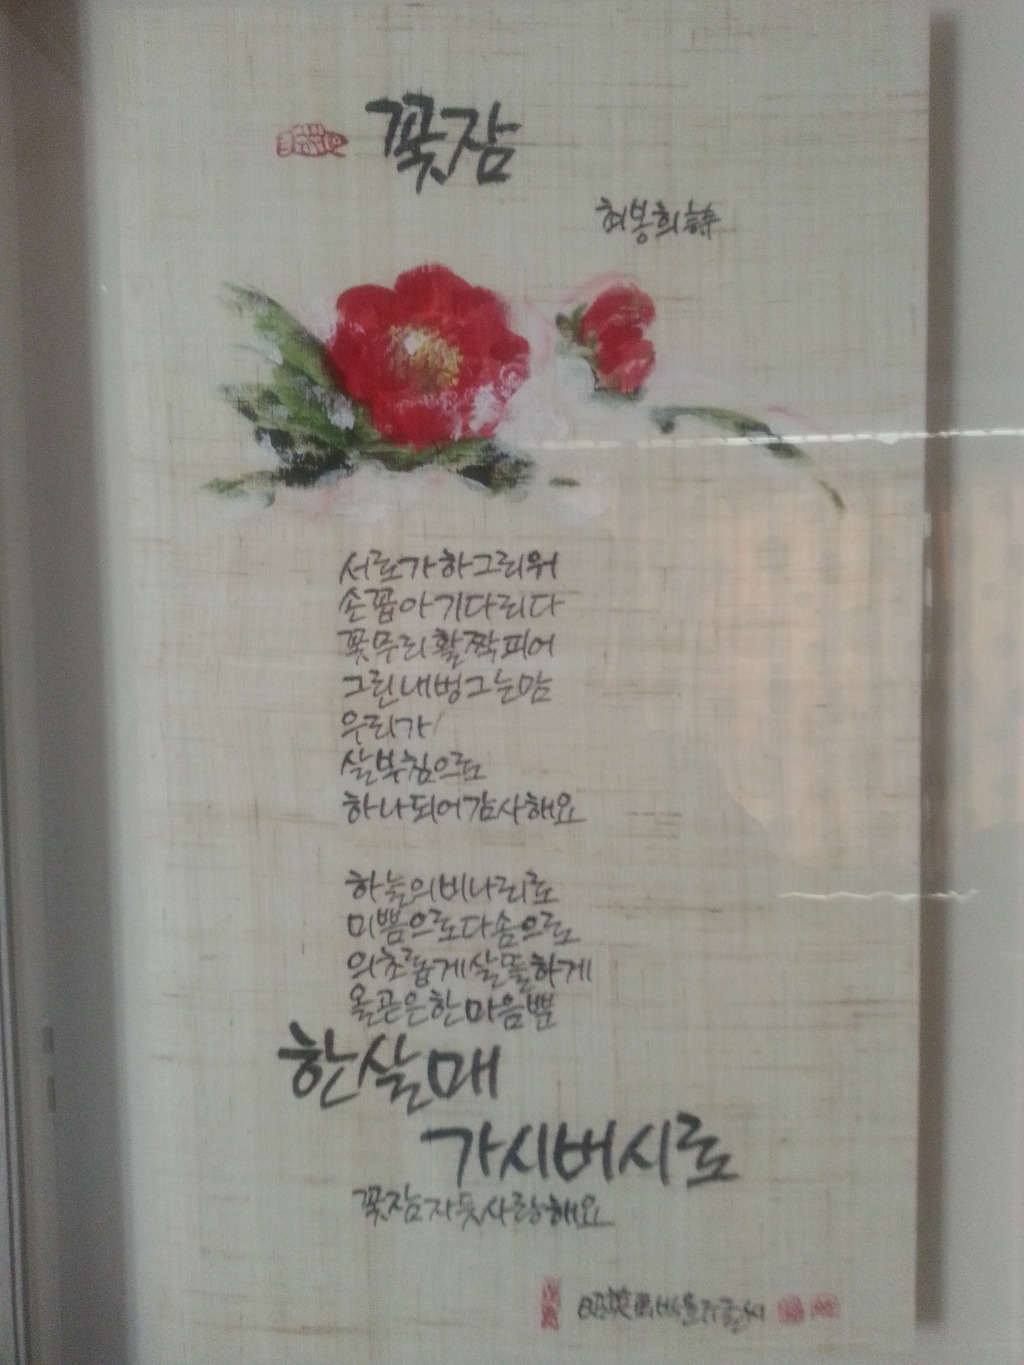 꽃잠
최봉희 詩
서로가 하 그리워
손꼽아 기다리다
꽃무리 활짝 피어
그린내 벙그는 맘
우리가
살부침으로
하나되어 감사해요
하늘의 비나리로
미쁨으로 다솜으로
의초롭게 살뜰하게
올곧은 한마음뿐
한살매
가시버시로
꽃잠 자듯 사랑해요
글씨